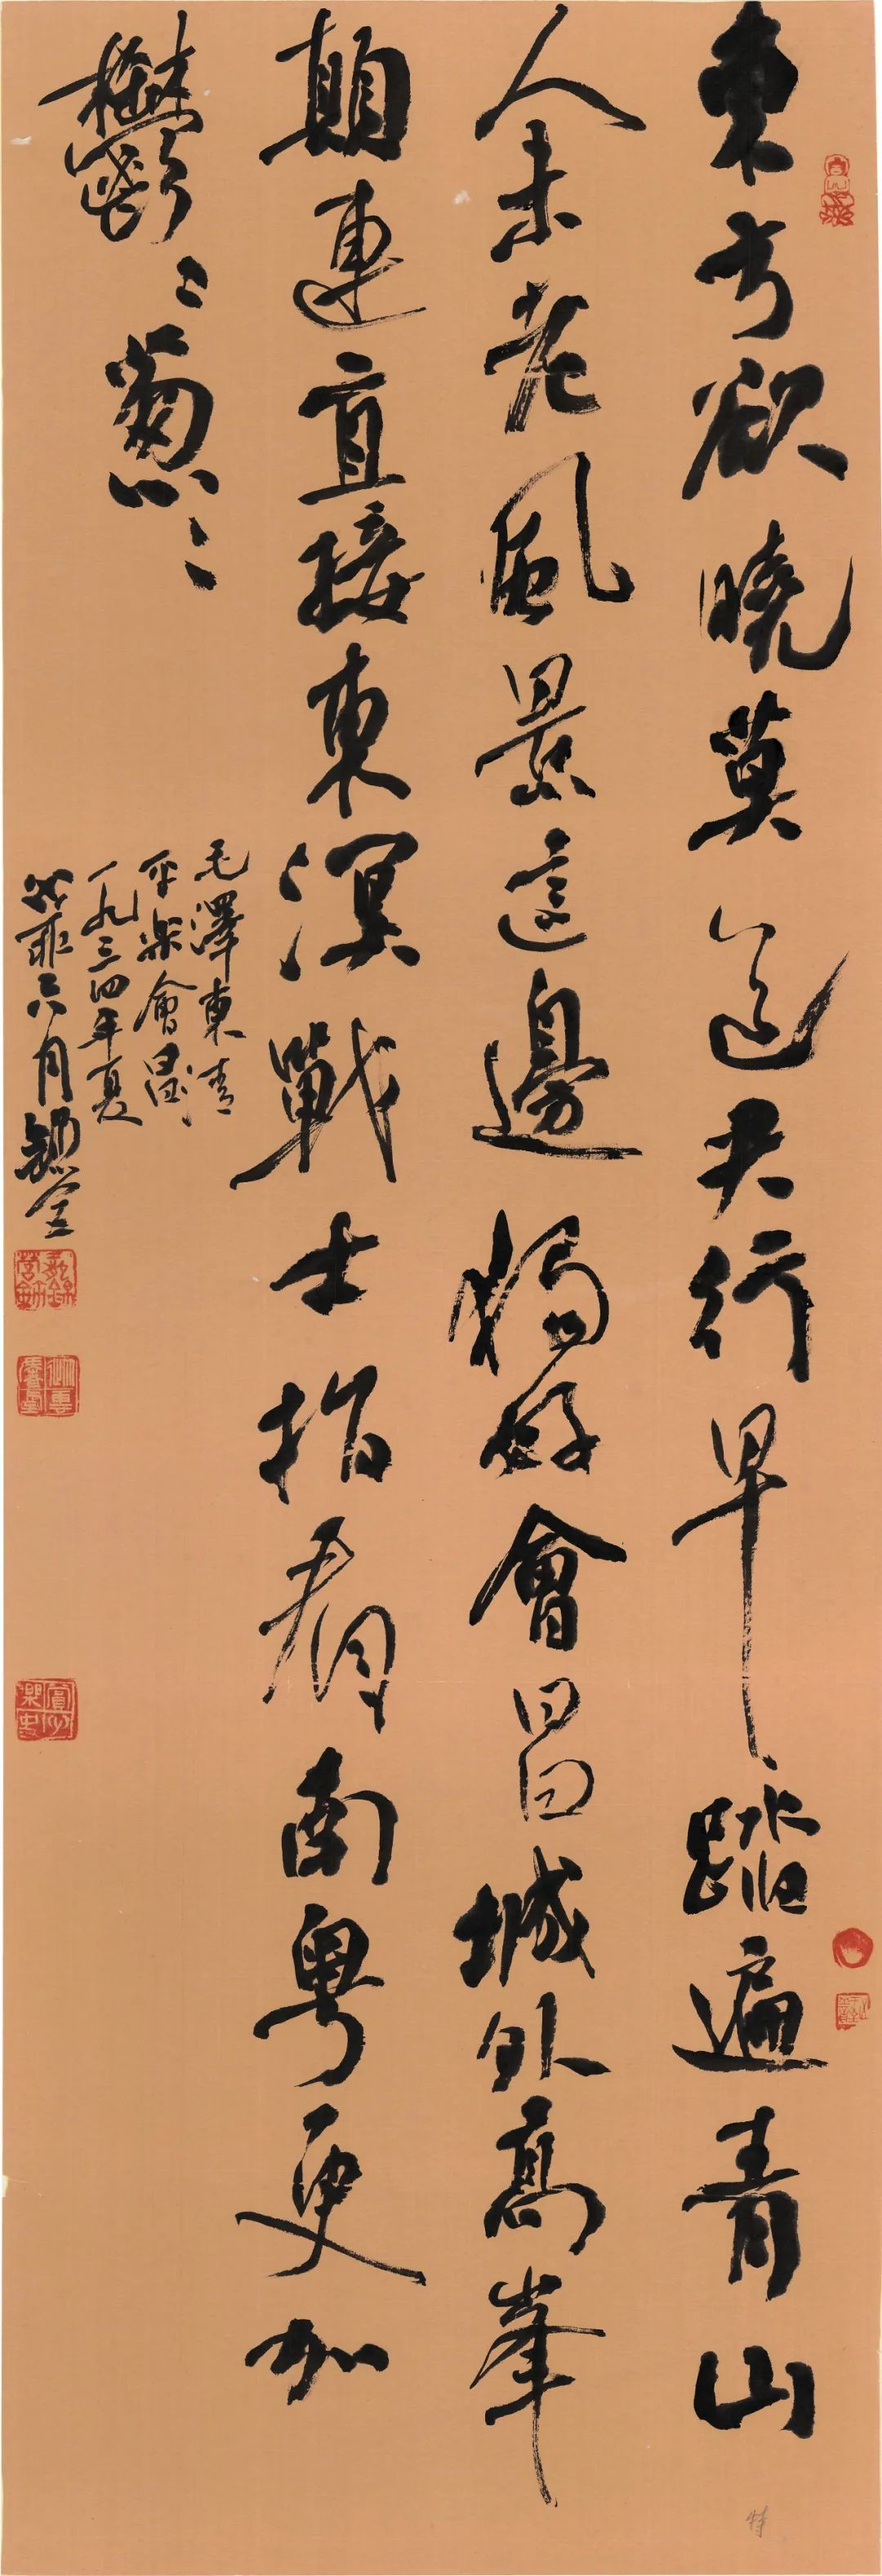 東方欲曉莫道君行早踏遍青山
人未老風景這邊獨好會昌城外高峯
顛連直接東溟戰士指看南粵更加
鬱〻葱〻
毛澤東清
平樂會昌
一九三四年夏
六月
特